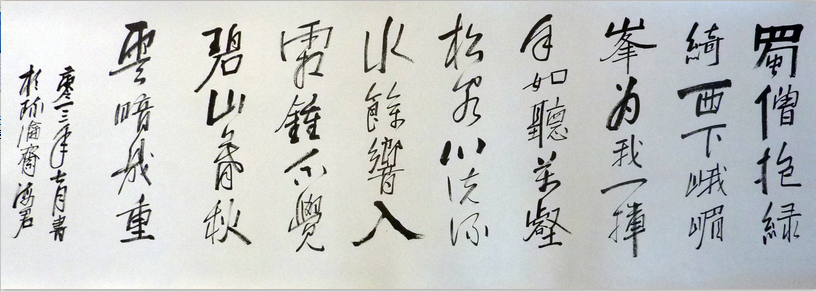 蜀僧抱緑
綺西下峨嵋
峯为我一揮
手如聽萬壑
松客心洗流
水餘響入
霜鍾不覺
碧山暮秋
雲暗幾重
零一三年七月書
於齋